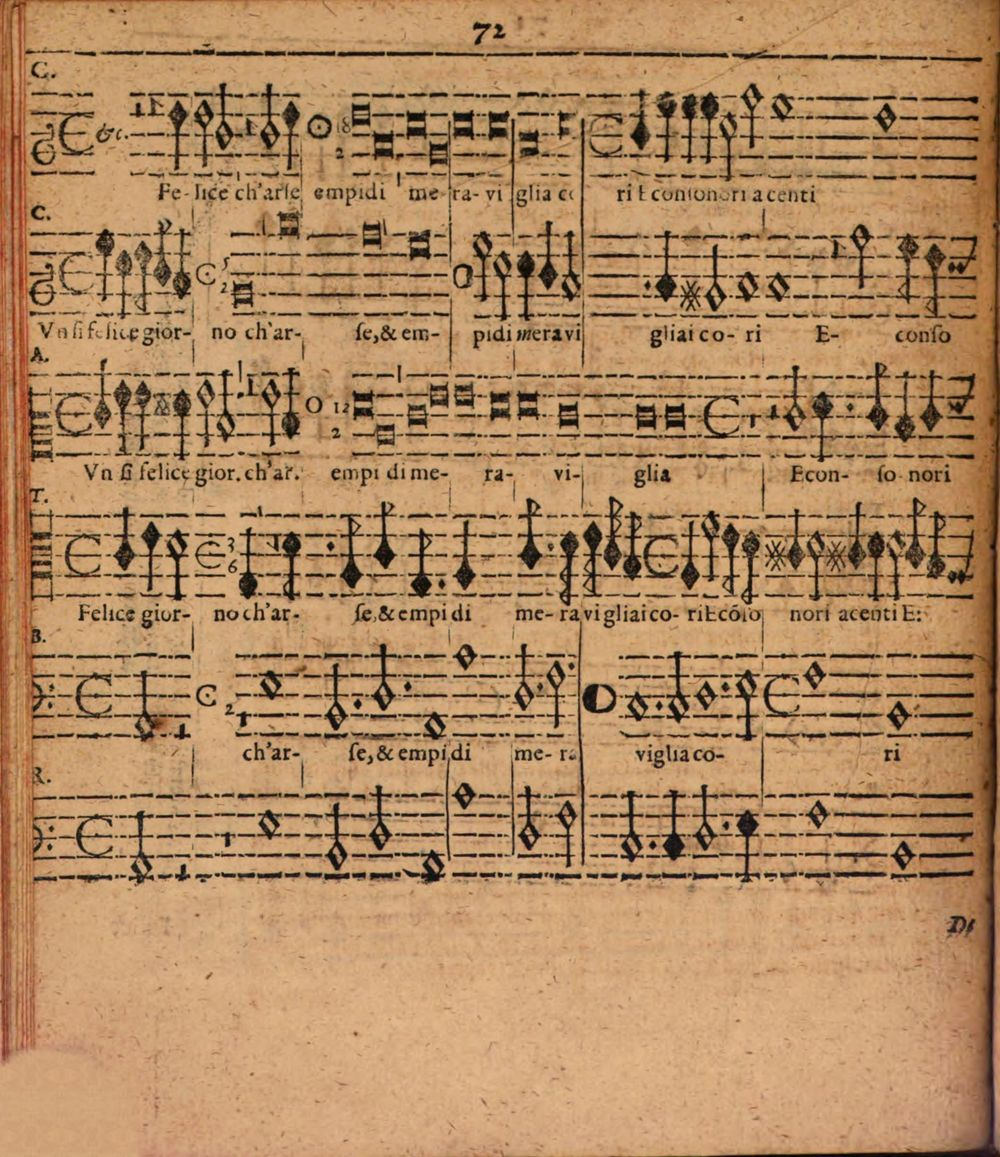 72
C.
&c.
Fe- lice ch'arse empidi me- ra- vi glia co ri E consonori acenti
C.
Vn si felice gior- no ch'ar- se, & em- pidi meravi gliai co- ri E- conso
A.
Vn si felice gior. ch'ar. empi di me- ra- vi- glia Econ- so nori
T.
Felice gior- no ch'ar- se, & empi di me- ra vigliai co- ri Ecóso nori acenti E:
B.
ch'ar- se, & empi di me- ra viglia co- ri
R.